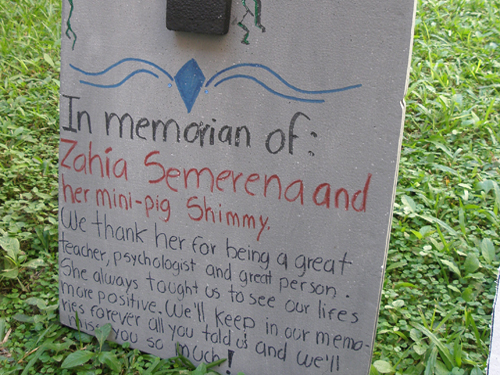 In memorian of:
Zahia Semerena and
her mini-pig Shimmy.
We thank her for being a great
teacher, psychologist and great person.
She always taught us to see our lifes
more positive. We'll keep in our memo-
ries forever all you told us and we'll
miss you so much!